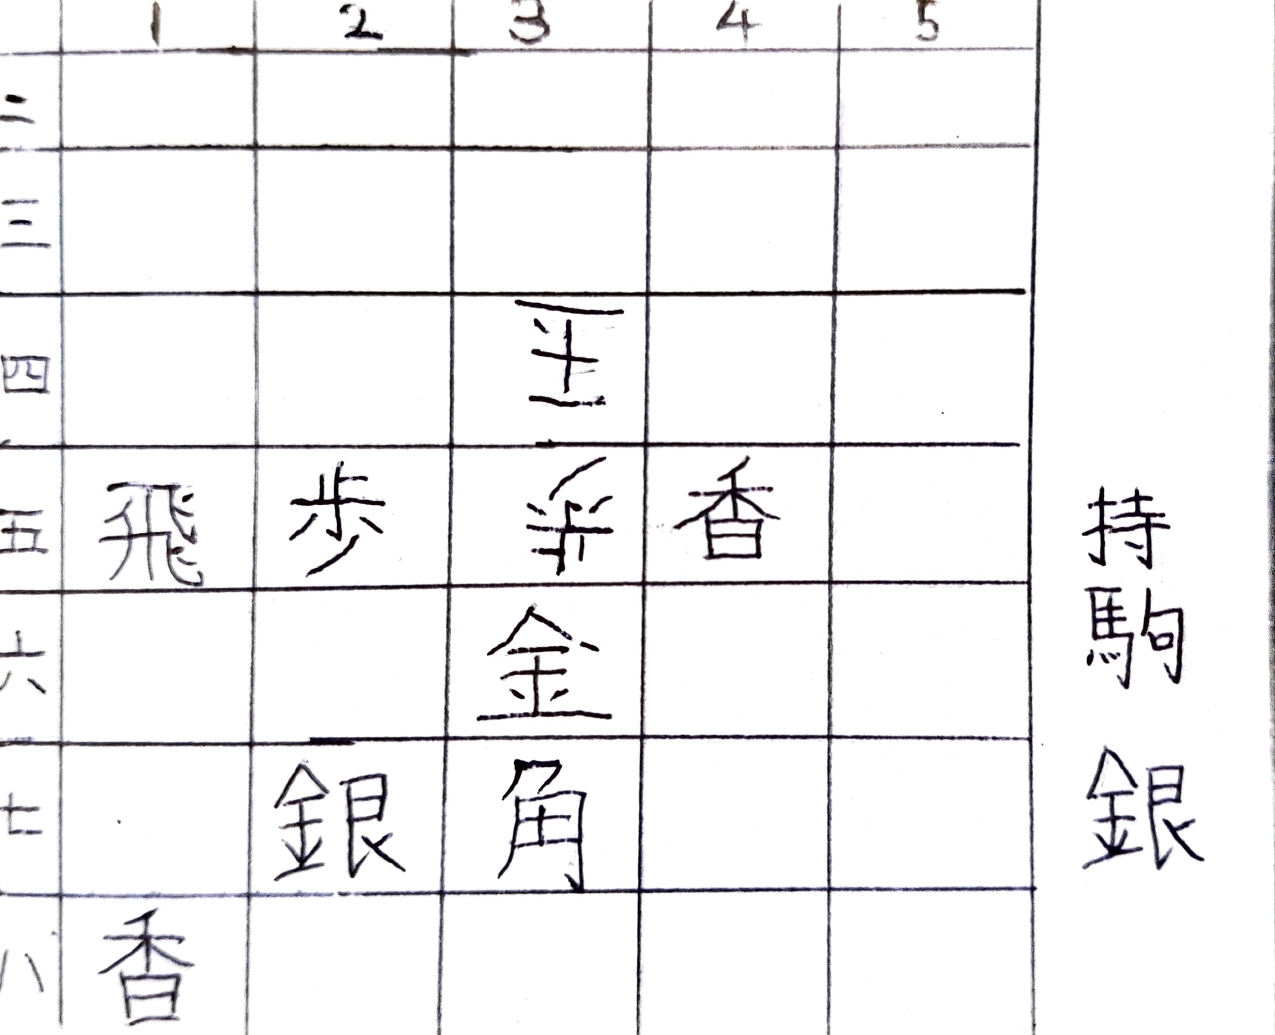 1 2 3 4 5
二
三
四 王
五 飛 歩 歩 香
六 金
七 銀 角
八 香
持駒 銀